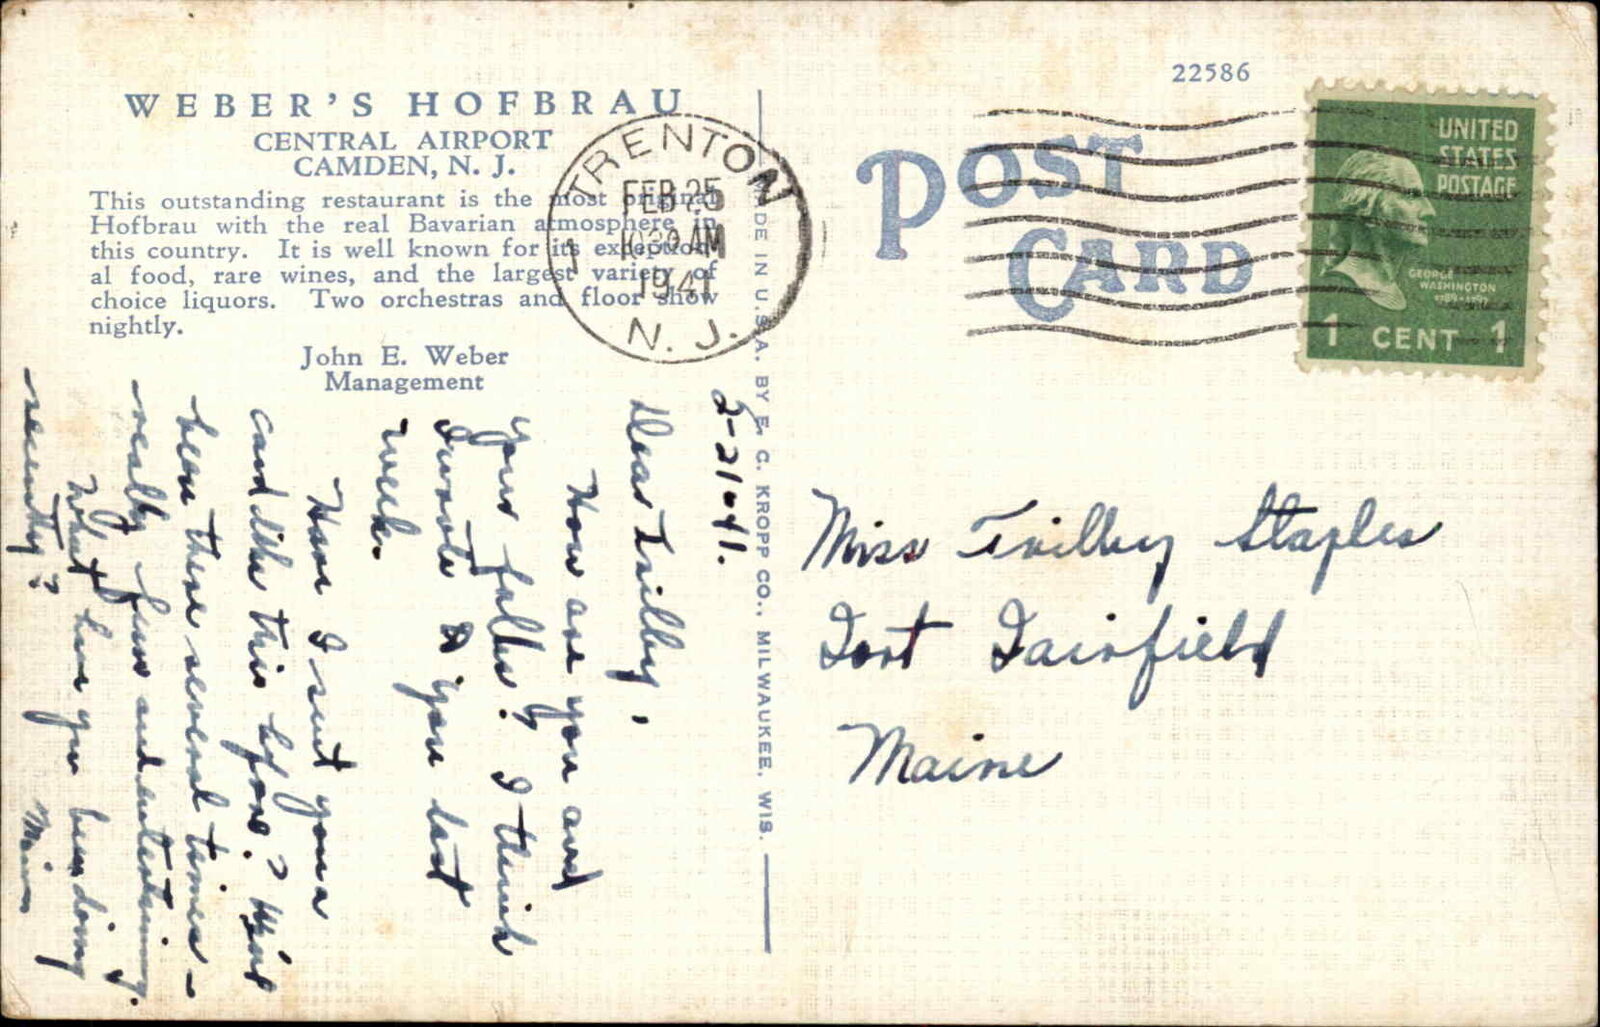 WEBER'S HOFBRAU
CENTRAL AIRPORT
CAMDEN, N. J.
This outstanding restaurant is the most original
Hofbrau with the real Bavarian atmosphere in
this country. It is well known for its exception-
al food, rare wines, and the largest variety of
choice liquors. Two orchestras and floor show
nightly.
John E. Weber
Management
TRENTON
FEB 25
10 30 AM
1941
N. J.
1
2-21-41.
Dear Trilby,
How are you and
your folks? I think
I wrote to you last
week.
Have I sent you a
card like this before? We've
been there several times -
really fun and entertaining.
What have you been doing
recently?
MADE IN U.S.A. BY E. C. KROPP CO., MILWAUKEE, WIS.
22586
POST
CARD
UNITED
STATES
POSTAGE
GEORGE
WASHINGTON
1789-1797
1 CENT 1
Miss Trilby Staples
Fort Fairfield
Maine